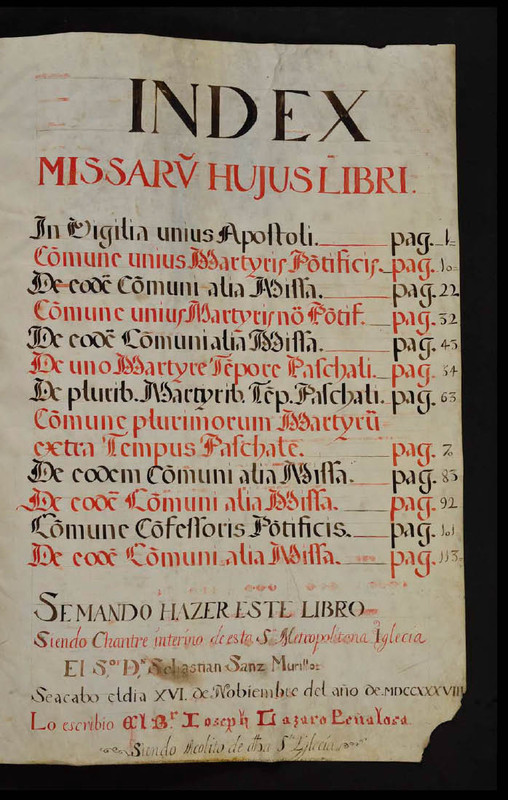 INDEX
MISSARṼ HUJUS LIBRI.
In Vigilia unius Apostoli. pag. 1.
Cõmune unius Martyris Põtificis. pag. 10.
De eodẽ Cõmuni alia Missa. pag. 22
Cõmune unius Martyris nõ Põtif. pag. 32
De eodẽ Cõmuni alia Missa. pag. 43
De uno Martyre Tẽpore Paschali. pag. 54
De plurib. Martyrib. Tẽp. Paschali. pag. 63
Cõmune plurimorum Martyrũ
extra Tempus Paschale. pag. 7
De eodem Cõmuni alia Missa. pag. 83
De eodẽ Cõmuni alia Missa. pag. 92
Cõmune Cõfessoris Põtificis. pag. 101
De eodẽ Cõmuni alia Missa. pag. 113.
SEMANDO HAZER ESTE LIBRO
Siendo Chantre interino de esta Sᵗᵃ Metropolitana Iglecia
El S.ᵒʳ D.ⁿ Sebastian Sanz Murillo:
Seacabo eldia XVI. de Nobiembre del año de MDCCXXXVIII
Lo escribio El Bʳ Ioseph Lazaro Peñalosa
Siendo Acolito de dha Sᵗᵃ Iglecia